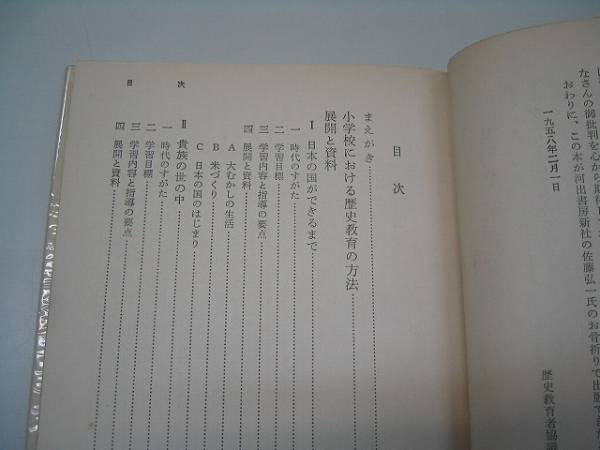 なさんの御批判を心から期待
おわりに、この本が河出書房新社の佐藤弘一氏のお骨折りで出版
一九五八年二月一日
歴史教育者協議
目次
まえがき
小学校における歴史教育の方法
展開と資料
Ⅰ 日本の国ができるまで
一 時代のすがた
二 学習目標
三 学習内容と指導の要点
四 展開と資料
A 大むかしの生活
B 米づくり
C 日本の国のはじまり
Ⅱ 貴族の世の中
一 時代のすがた
二 学習目標
三 学習内容と指導の要点
四 展開と資料
目次